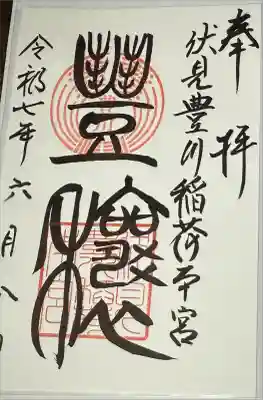 奉拝
伏見豊川稲荷本宮
豊穣
令和七年六月八日